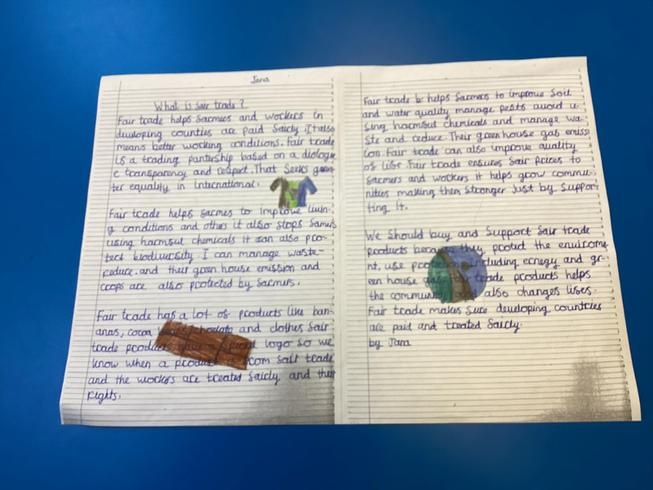 Jara
What is fair trade?
Fair trade helps farmers and workers in
developing counties are paid fairly. It also
means better working conditions. Fair trade
is a trading pantership based on a dialogu-
e transparency and respect. That seeks grea-
ter equality in International.
Fair trade helps farmes to improve livin-
g conditions and others it also stops famers
using harmful chemicals it can also pro-
tect biodiversity. I can manage waste-
reduce. and their green house emission and
crops are also protected by farmers.
Fair trade has a lot of products like ban-
anas, cocoa and clothes fair
trade products logo so we
know when a product from fair trade
and the workers are treated fairly and their
rights.
Fair trade helps farmers to improve soil
and water quality manage pests avoid u-
sing harmful chemicals and manage wa-
ste and reduce. Their green house gas emiss-
ion. Fair trade can also improve quality
of life. Fair trade ensures fair prices to
farmers and workers it helps grow commu-
nities making them stronger just by suppor-
ting it.
We should buy and support fair trade
products because they protect the enviorme-
nt, use including energy and gr-
een house trade products helps
the also changes lifes.
Fair trade makes sure developing countries
are paid and treated fairly.
by Jara